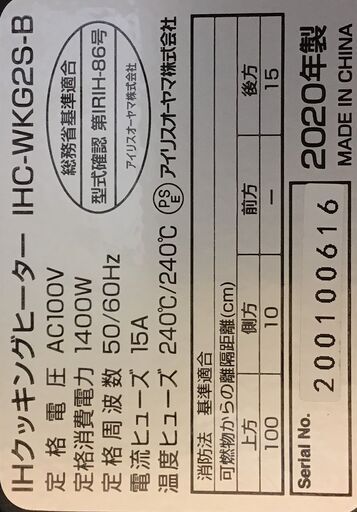 IHクッキングヒーター IHC-WKG2S-B
定格電圧 AC100V
定格消費電力 1400W
定格周波数 50/60Hz
電流ヒューズ 15A
温度ヒューズ 240℃/240℃
総務省基準適合
型式確認 第IRIH-86号
アイリスオーヤマ株式会社
PSE アイリスオーヤマ株式会社
消防法 基準適合
可燃物からの離隔距離(cm)
上方 側方 前方 後方
100 10 — 15
Serial No. 200100616
2020年製
MADE IN CHINA